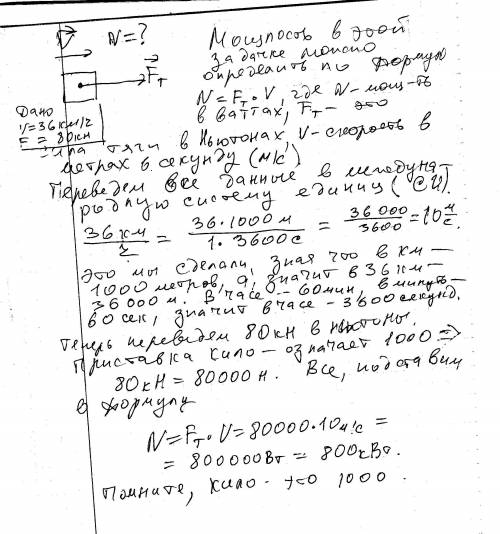 V N = ?
Мощность в этой
задачке можно
определить по формул
N = Fт · V, где N – мощ-ть
в ваттах, Fт – это
Fт
Дано
V = 36 км/ч
F = 80 кн
сила тяги в Ньютонах, V – скорость в
метрах в секунду (м/с)
Переведем все данные в междунат
родную систему единиц (СИ).
36 км/ч = 36·1000 м / 1·3600 с = 36 000 / 3600 = 10 м/с.
это мы сделали, зная что в км –
1000 метров, а, значит в 36 км –
36 000 м. В часе – 60 мин, в минуте –
60 сек, значит в часе – 3600 секунд.
Теперь переведем 80 кН в ньютоны.
Приставка кило – означает 1000 ⇒
80 кН = 80000 н. Все, подставим
в формулу
N = Fт · V = 80000 · 10 м/с =
= 800000 Вт = 800 кВт.
Помните, кило – это 1000.